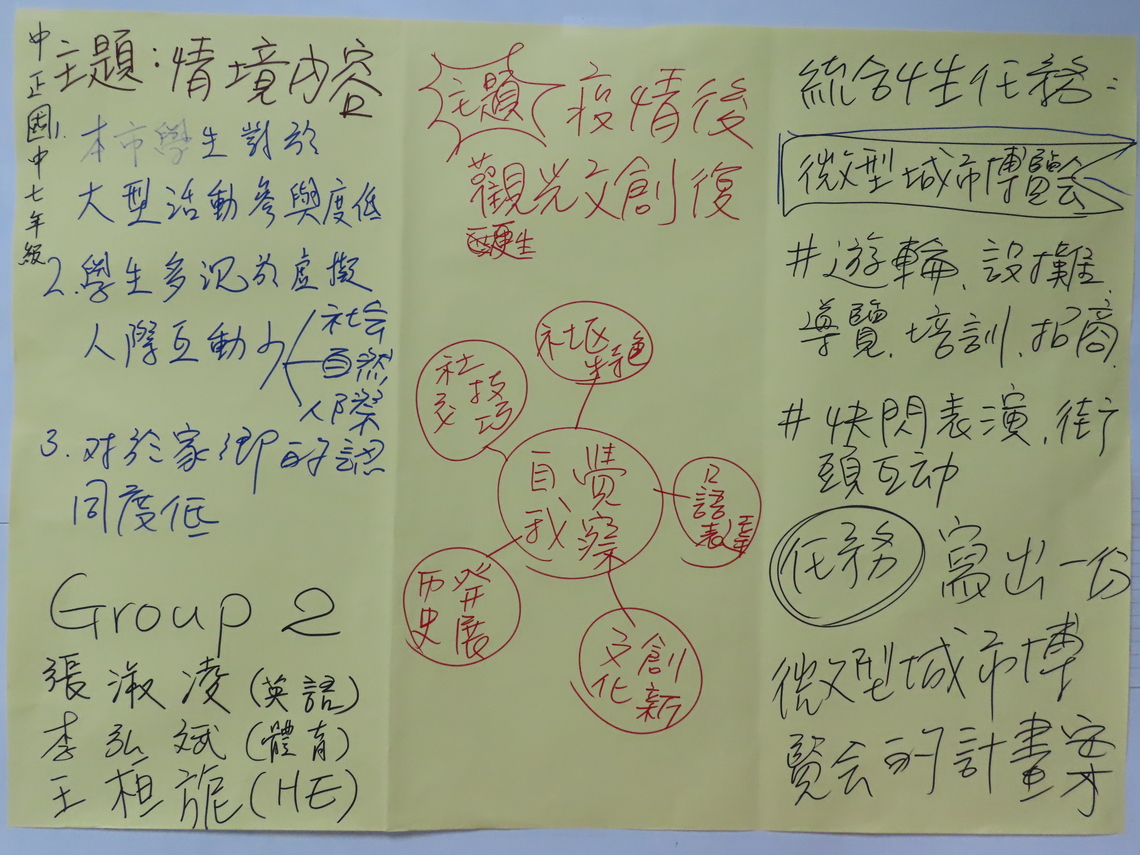 中正國中七年級
主題：情境內容
1. 本市學生對於
大型活動參與度低
2. 學生多沉於虛擬
人際互動少
社会
自然
人際
3. 对於家鄉的認
同度低
Group 2
張淑凌(英語)
李弘斌(體育)
王桓旎(HE)
主題 疫情後
觀光文創復
生
社区
特色
社
交
技
巧
自
我
覺
察
口
語
表達
历
史
発
展
文
化
創
新
統合性任務：
微型城市博覽会
#遊輪、設攤、
導覽、培訓、招商、
#快閃表演、街
頭互动
任務 寫出一份
微型城市博
覽会的計畫案